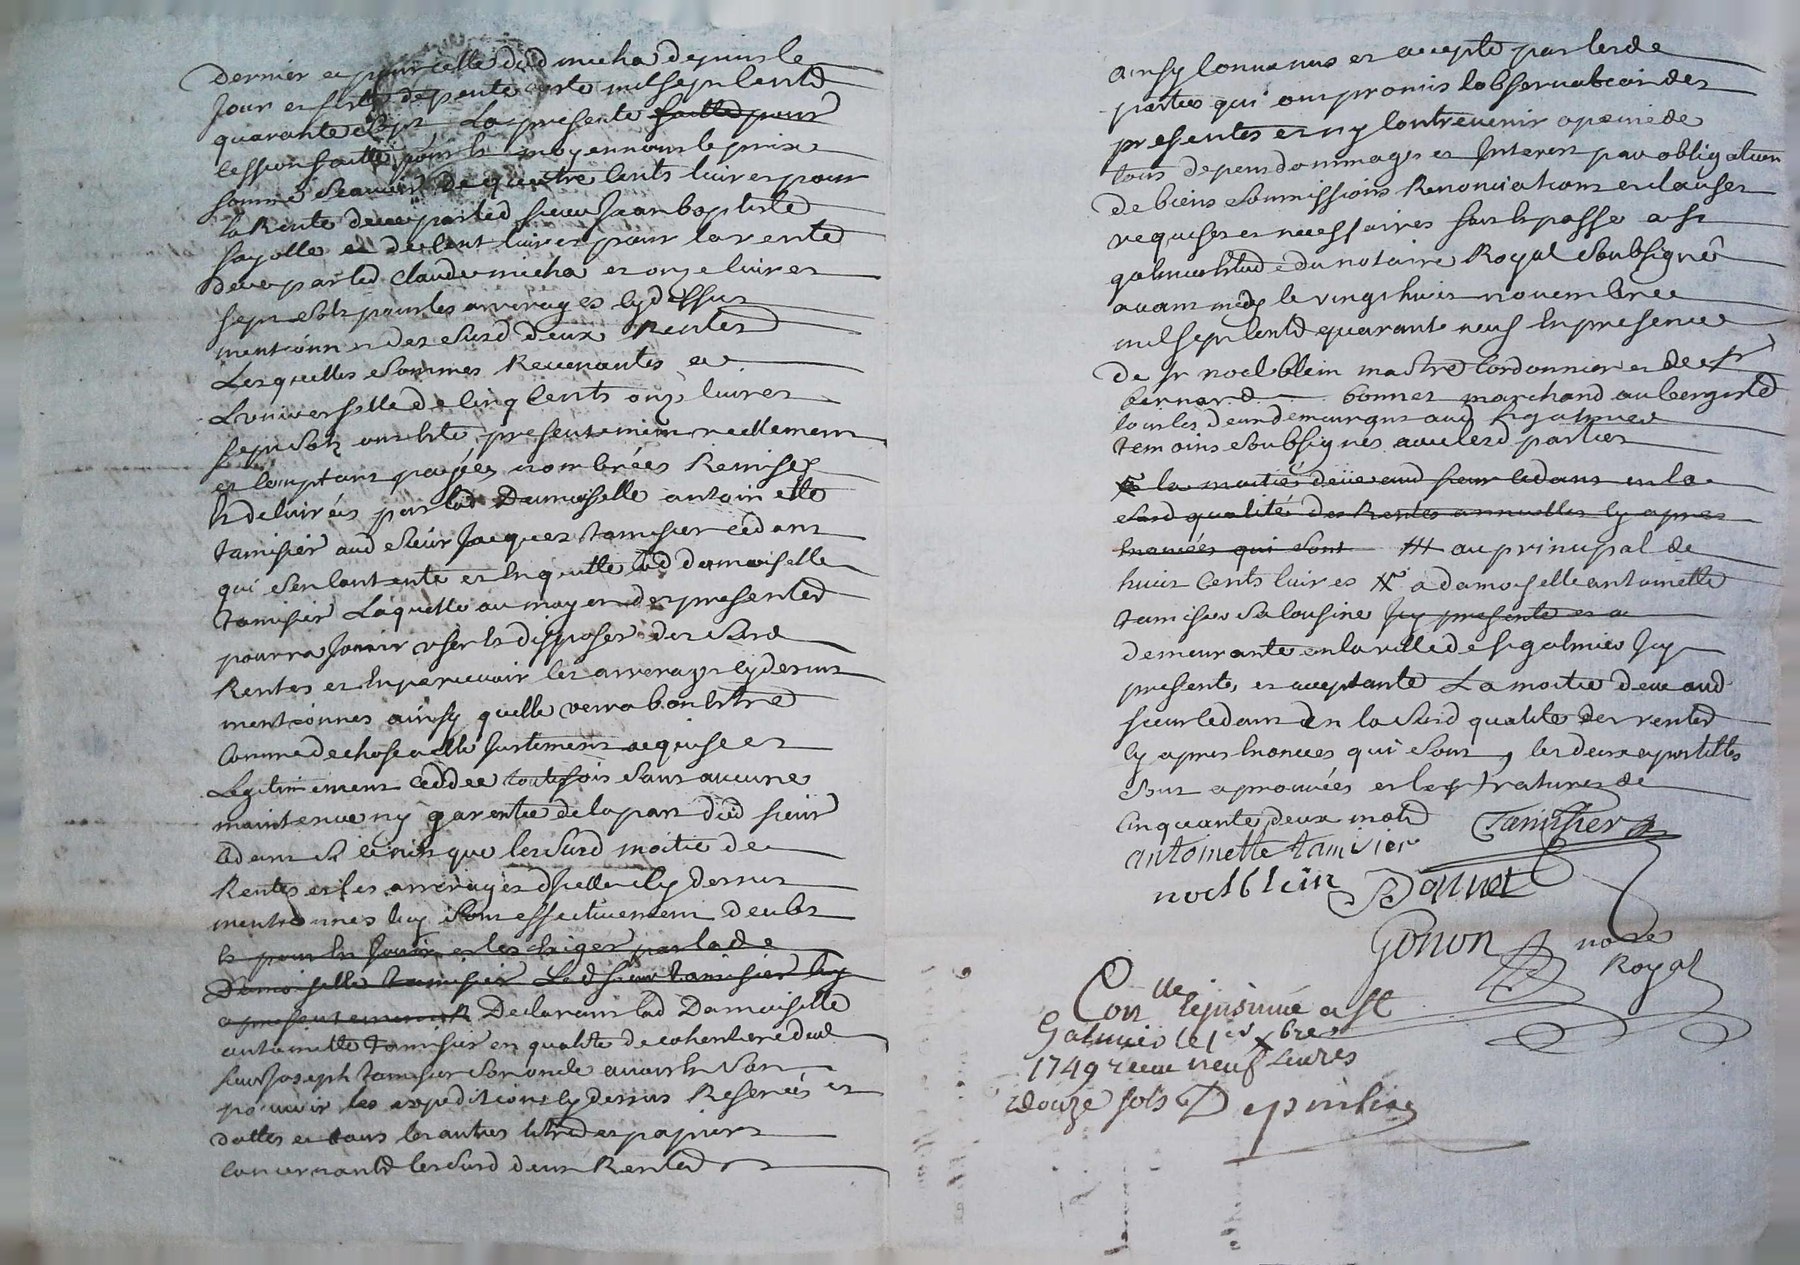 dernier et pour celle dud micha depuis le
jour et feste de pentecoste mil sept centd
quarante sept, La presente faitte pour
cession faitte pour et moyennant le prix
somme scauoir de quatre cents liures pour
la Rente deue par led sieur Jean baptiste
fayolle et de cent liures pour la rente
deue par led Claude micha et onze liures
sept sols pour les arrerages cy dessus
mentionnes des susd deux Rentes
Lesquelles sommes Reuenantes a
L'vniverselle de cinq cents onze liures
sept sols ont été presentement reellement
et comptant payées nombrées Remises
et deliurées par lad Damoiselle antoinette
tamisier aud sieur Jacques tamisier cedant
qui s'en contente et en quitte lad damoiselle
tamisier Laquelle au moyen des presented
pourra jouir user et disposer des susd
Rentes et en perceuoir les arrerages cy dessus
mentionnes ainsy quelle verra bon estre
comme de chose a elle justement acquise et
Legitimement ceddée toutefois sans aucune
maintenue ny garentie de la part dud sieur
cedant si ce n'est que les susd moitié de
Rentes et les arrerages d'icelles cy dessus
mentionnes luy sont effectiuement deubs
et pour en Jouir et les exiger par lade
Damoiselle tamisier Led sieur tamisier luy
a presentement Declarant lad Damoiselle
antoinette tamisier en qualité de coheritiere dud
sieur Joseph tamisier son oncle auoir en son
pouuoir les expeditions cy dessus Reserués et
dattes et tous les autres titres et papiers
concernantd les susd deux Rented
ainsy conuenus et accepté par lesde
parties qui ont promis l'obseruation des
presentes et n'y contreuenir a peine de
tous depens dommages et Interets par obligation
de biens soumissions Renonciations et clauses
requises et necessaires fait et passé a st
galmier etude du notaire Royal soubsigné
auant midy le vingt huit nouembre
mil sept centd quarante neuf en presence
de sr noel blein maitre Cordonnier et de sr
bernard bonnet marchand aubergisted
tous les deux demeurants aud st galmier
temoins soubsignes auec lesd parties
la moitié deüe aud sieur cedant en la
susd qualité des Rentes annuelles cy apres
enoncées qui sont au principal de
huit cents liures a damoiselle antoinette
tamisier sa cousine Icy presente et a
demeurante en la ville de st galmier Icy
presente, et acceptante La moitié deue aud
sieur cedant en la susd qualité des rented
cy apres enoncees qui sont, les deux apostilles
sont aprouuées et les ratures de
cinquante deux motd Tamisier
antoinette tamisier
noel blein Bonnet
Gonon nore
Royal
Con lle et insinué a st
Galmier le 1er xbre
1749 receu neuf liures
douze sols Depinlire